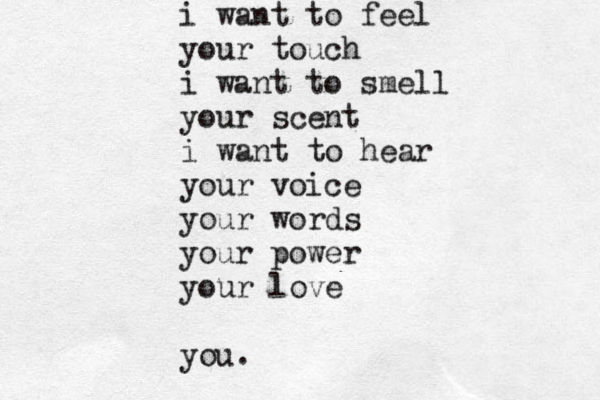 i want to feel
your touch
i want to smell
your scent
i want to hear
your voice
your words
your power
your love
you.